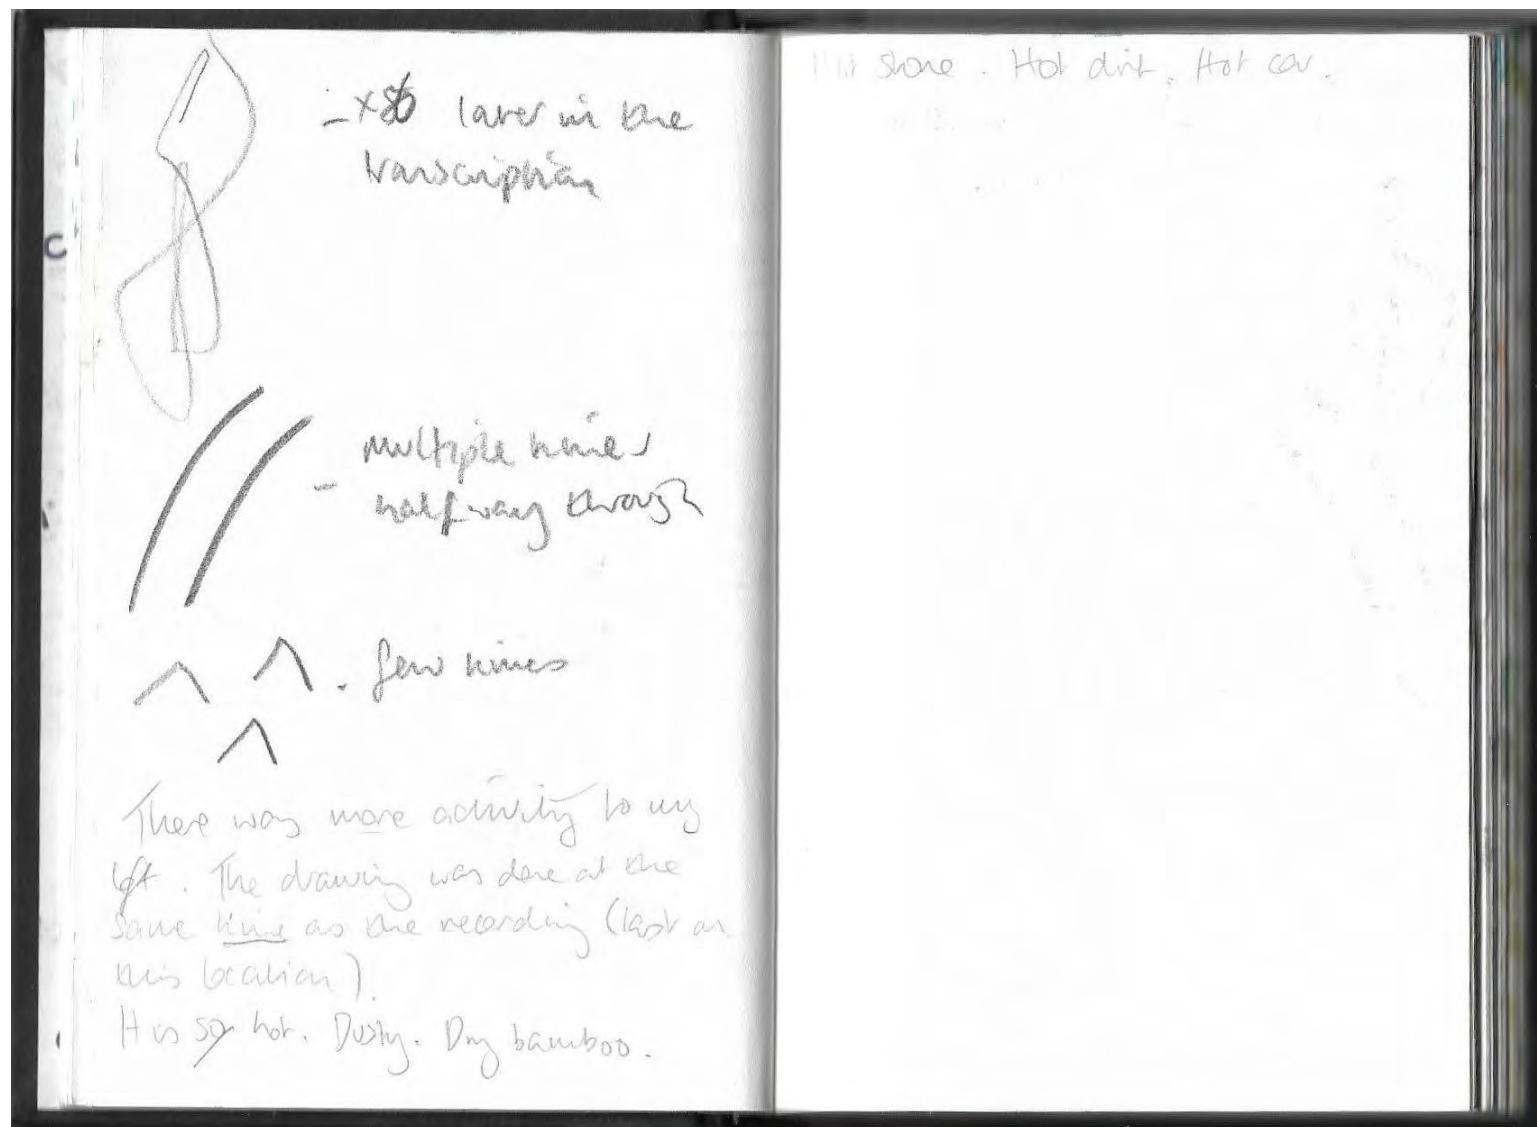 later in the
transcription
multiple times
halfway through
few times
There was more activity to my
left. The drawing was done at the
same time as the recording (last on
this location).
It is so hot. Dusty. Dry bamboo.
stone. Hot dirt. Hot car.
C